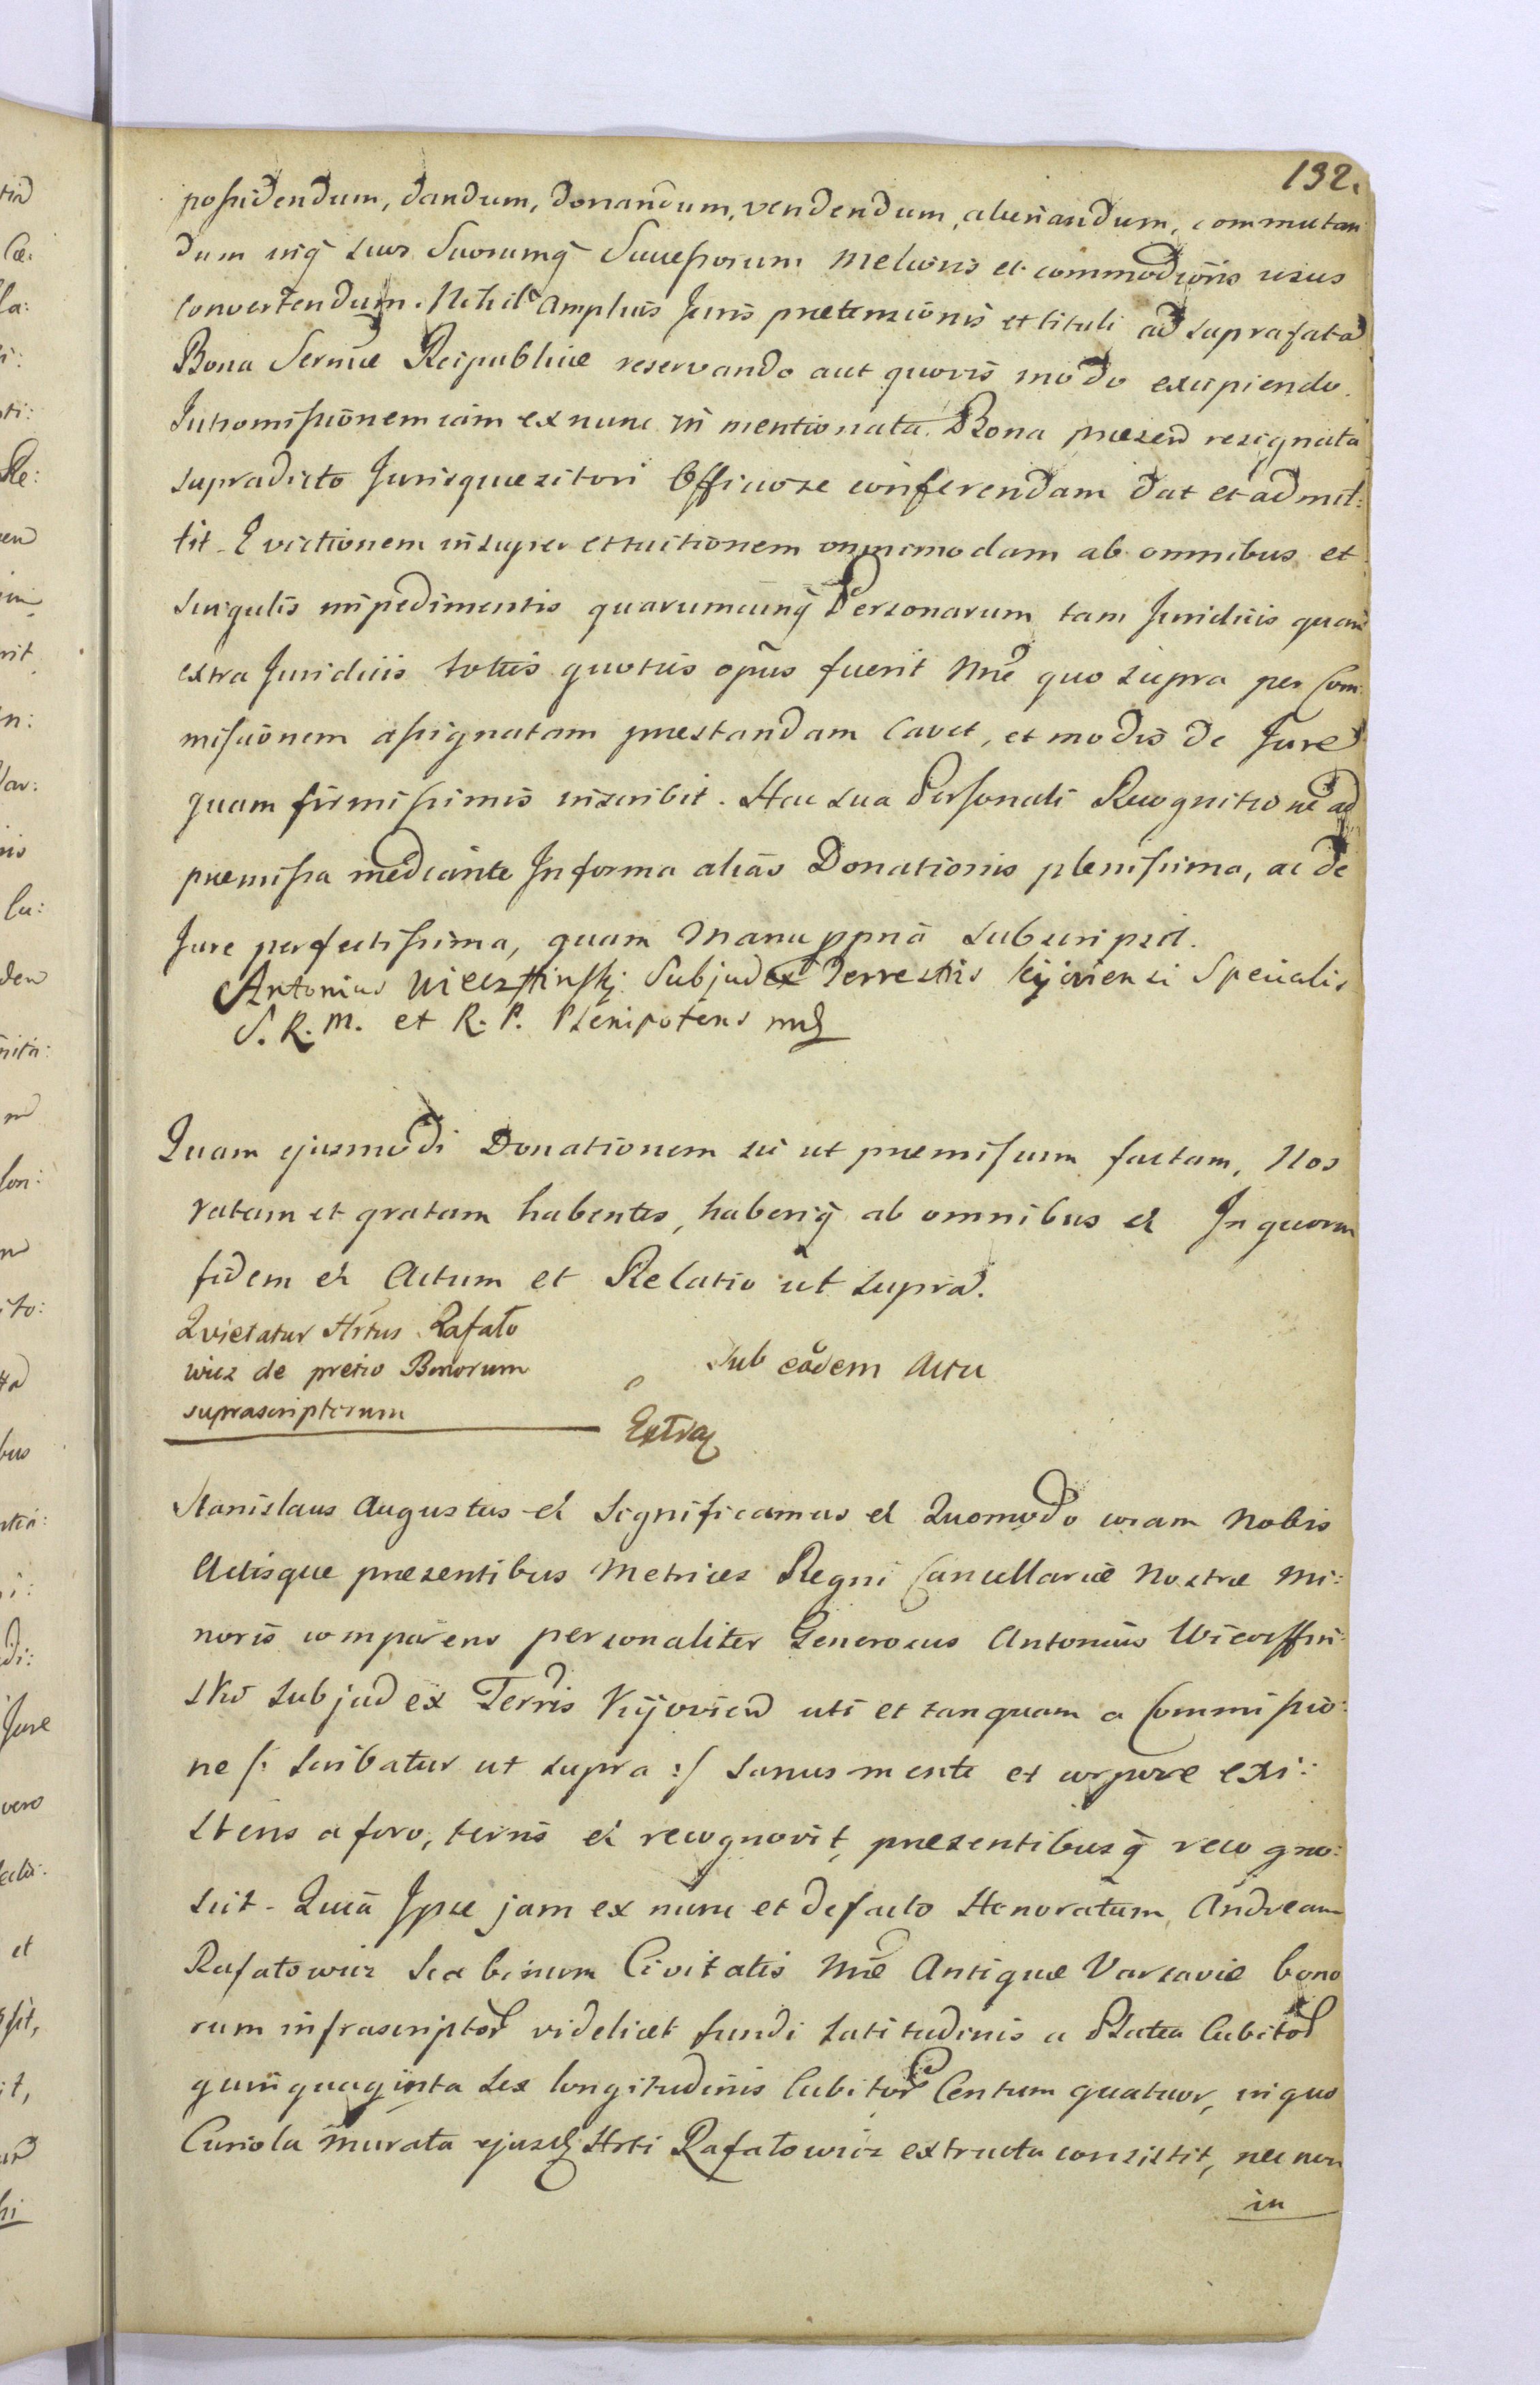 132.
possidendum, dandum, donandum, vendendum, alienandum, commutan
dum inq̃ suos Suorumq̃ Successorum melioris et commodioris usus
convertendum. Nihil amplius Juris praetensionis et tituli ad suprafata
Bona Sermae Reipublicae reservando aut quovis modo excipiendo.
Intromissionem iam ex nunc in mentionata Bona praesen resignata
supradicto Jurisquaesitori Officiose conferendam dat et admit:
tit. Evictionem insuper et tuitionem omnimodam ab omnibus et
singulis impedimentis quarumcunq̃ Personarum tam Juridicis quam
extra Juridicis toties quoties opus fuerit nñe quo supra per Com:
missionem assignatam praestandam cavet, et modis de Jure
quam firmissimis inscribit. Hac sua Personali Recognitione ad
praemissa mediante In forma alias Donationis plenissima, ac de
Jure perfectissima, quam Manu ppria subscripsit.
Antonius Subjudex Terrestris Kijoviensi Specialis
S. R. M. et R. P. Plenipotens mp
Quam ejusmodi Donationem sic ut praemissum factam, Nos
ratam et gratam habentes, haberiq̃ ab omnibus et In quorum
fidem et Actum et Relatio ut supra.
Quietatur Hrtus Rafało
wicz de pretio Bonorum
suprascriptorum
Sub eodem Actu
Extra
Stanislaus Augustus et Significamus et Quomodo coram Nobis
Actisque praesentibus Metrices Regni Cancellariae Nostrae Mi:
noris comparens personaliter Generosus Antonius
ski Subjudex Terris Kijovien uti et tanquam a Commissio:
ne /: scribatur ut supra :/ sanus mente et corpore exi:
stens a foro, terris et recognovit, praesentibusq̃ recogno:
scit. Quia Ipse jam ex nunc et de facto Honoratum Andream
Rafałowicz Scabinum Civitatis nrae Antiquae Varsaviae bono
rum infrascriptor videlicet fundi latitudinis a Platea Cubitor
quinquaginta sex longitudinis Cubitor Centum quatuor, in quo
Curiola murata ejusd Hrti Rafałowicz extructa consistit, nec non
in